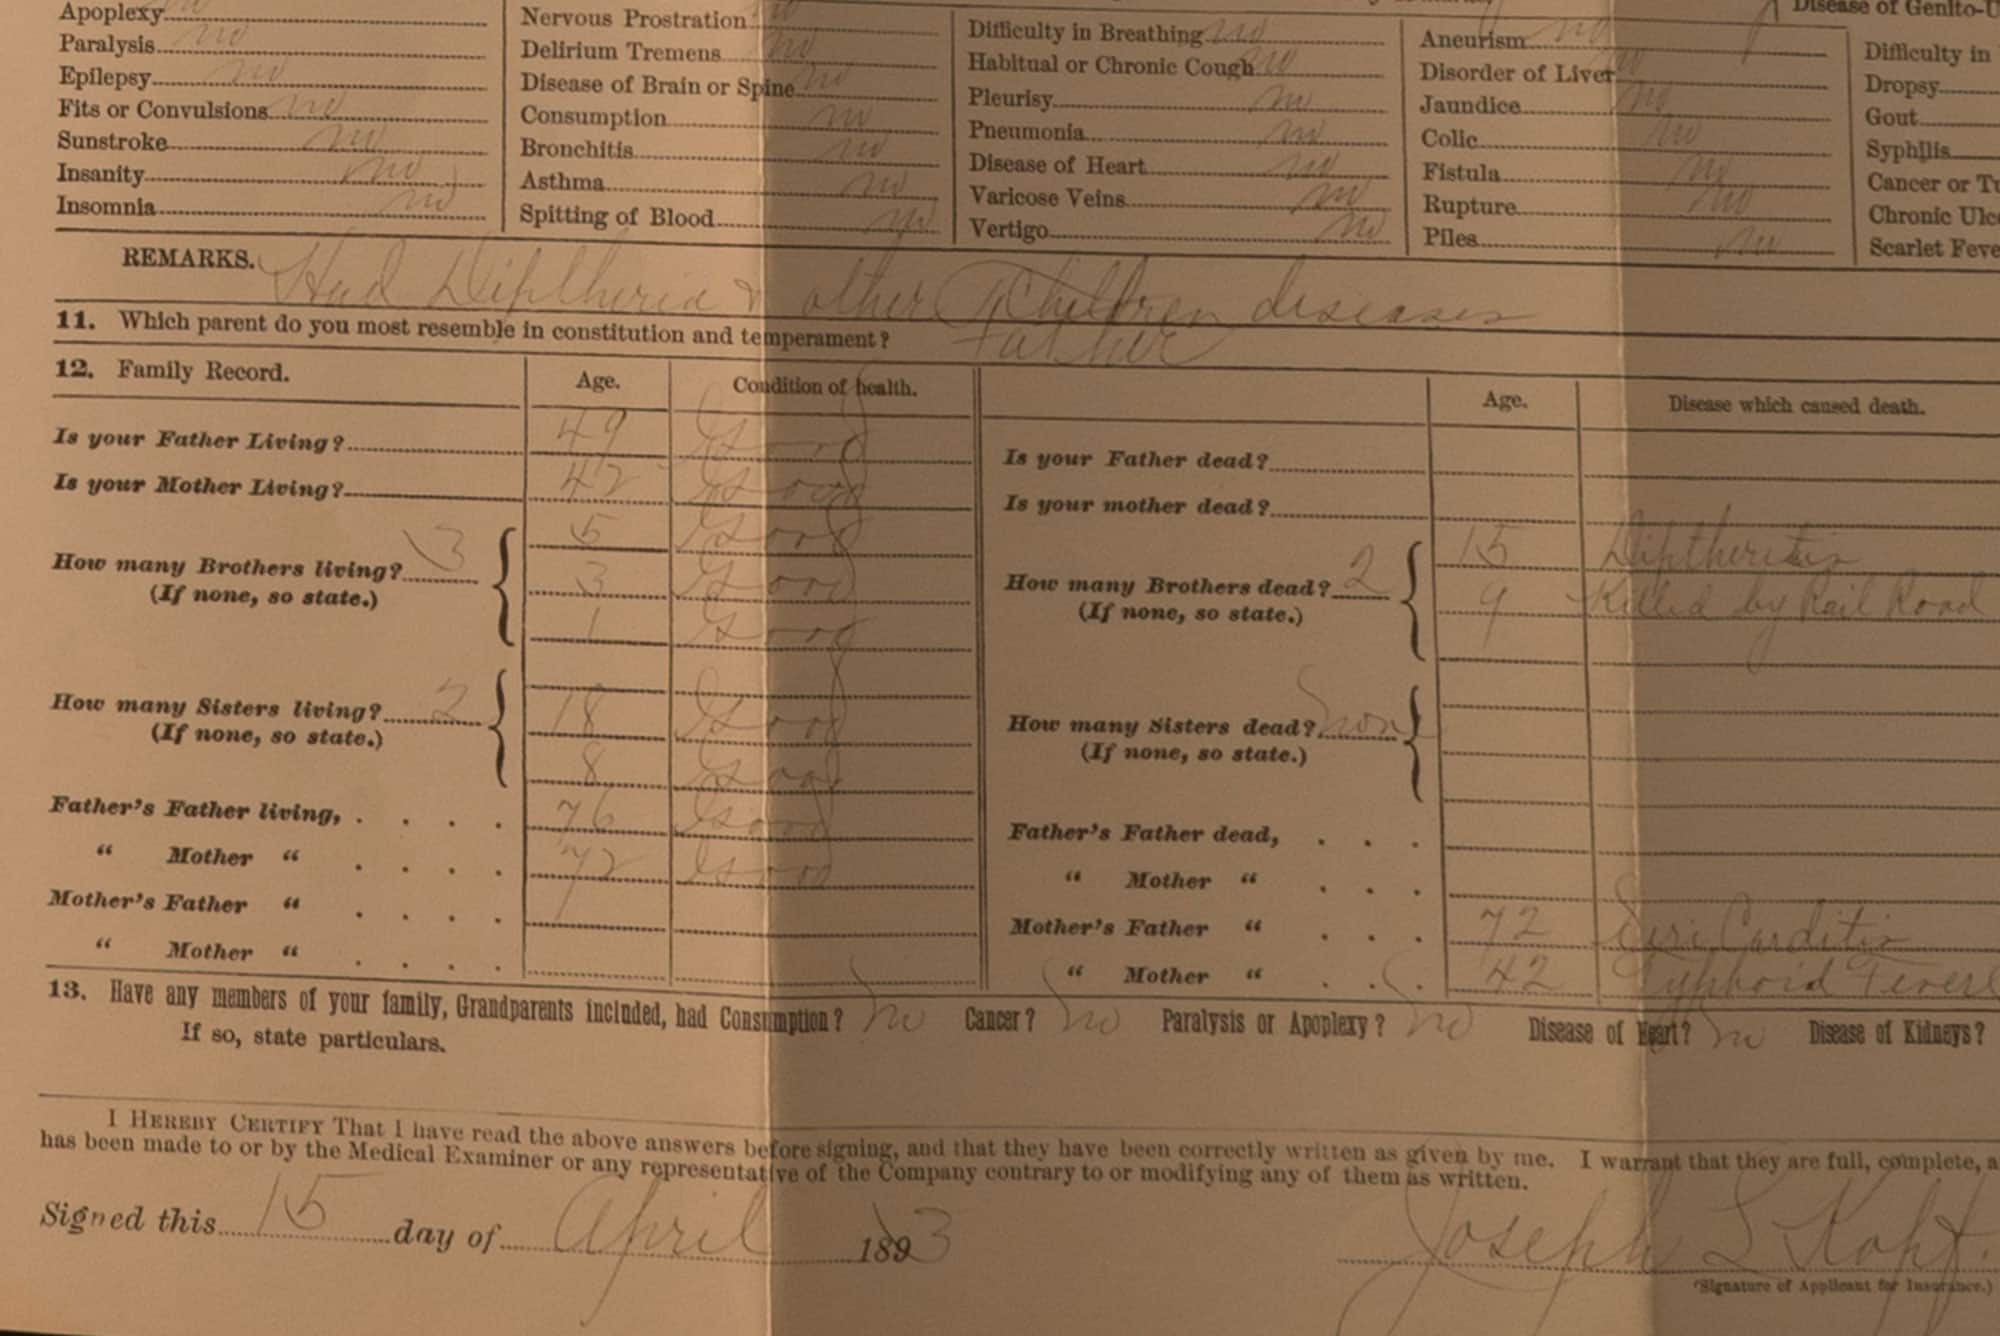 Apoplexy no Nervous Prostration no Difficulty in Breathing no Aneurism no Disease of Genito-U
Paralysis no Delirium Tremens no Habitual or Chronic Cough no Disorder of Liver no Difficulty in
Epilepsy no Disease of Brain or Spine no Pleurisy no Jaundice no Dropsy
Fits or Convulsions no Consumption no Pneumonia no Colic no Gout
Sunstroke no Bronchitis no Disease of Heart no Fistula no Syphilis
Insanity no Asthma no Varicose Veins no Rupture no Cancer or Tu
Insomnia no Spitting of Blood no Vertigo no Piles no Chronic Ulce
Scarlet Feve
REMARKS. Had Diptheria & other Children diseases
11. Which parent do you most resemble in constitution and temperament? Father
12. Family Record. Age. Condition of health. Age. Disease which caused death.
Is your Father Living? 49 Good Is your Father dead?
Is your Mother Living? 42 Good Is your mother dead?
5 Good 15 Diptheritis
How many Brothers living? 3 3 Good How many Brothers dead? 2 9 Killed by Rail Road
(If none, so state.) 1 Good (If none, so state.)
How many Sisters living? 2 18 Good How many Sisters dead? non
(If none, so state.) 8 Good (If none, so state.)
Father's Father living, 76 Good Father's Father dead,
" Mother " 72 Good " Mother "
Mother's Father " Mother's Father " 72 Carditis
" Mother " " Mother " 42 Typhoid Fever
13. Have any members of your family, Grandparents included, had Consumption? no Cancer? no Paralysis or Apoplexy? no Disease of Heart? no Disease of Kidneys?
If so, state particulars.
I HEREBY CERTIFY That I have read the above answers before signing, and that they have been correctly written as given by me. I warrant that they are full, complete, a
has been made to or by the Medical Examiner or any representative of the Company contrary to or modifying any of them as written.
Signed this 15 day of April 1893 Joseph L Kopf.
(Signature of Applicant for Insurance.)